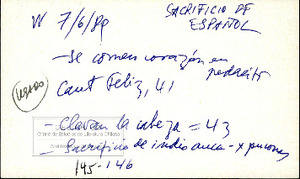 W 7/6/89
SACRIFICIO DE
ESPAÑOL
- Se comen corazón en
pedacitos
Caut Feliz, 41
(usado)
- Clavan la cabeza = 43
- Sacrificio de indio auca - x pucones
145-146